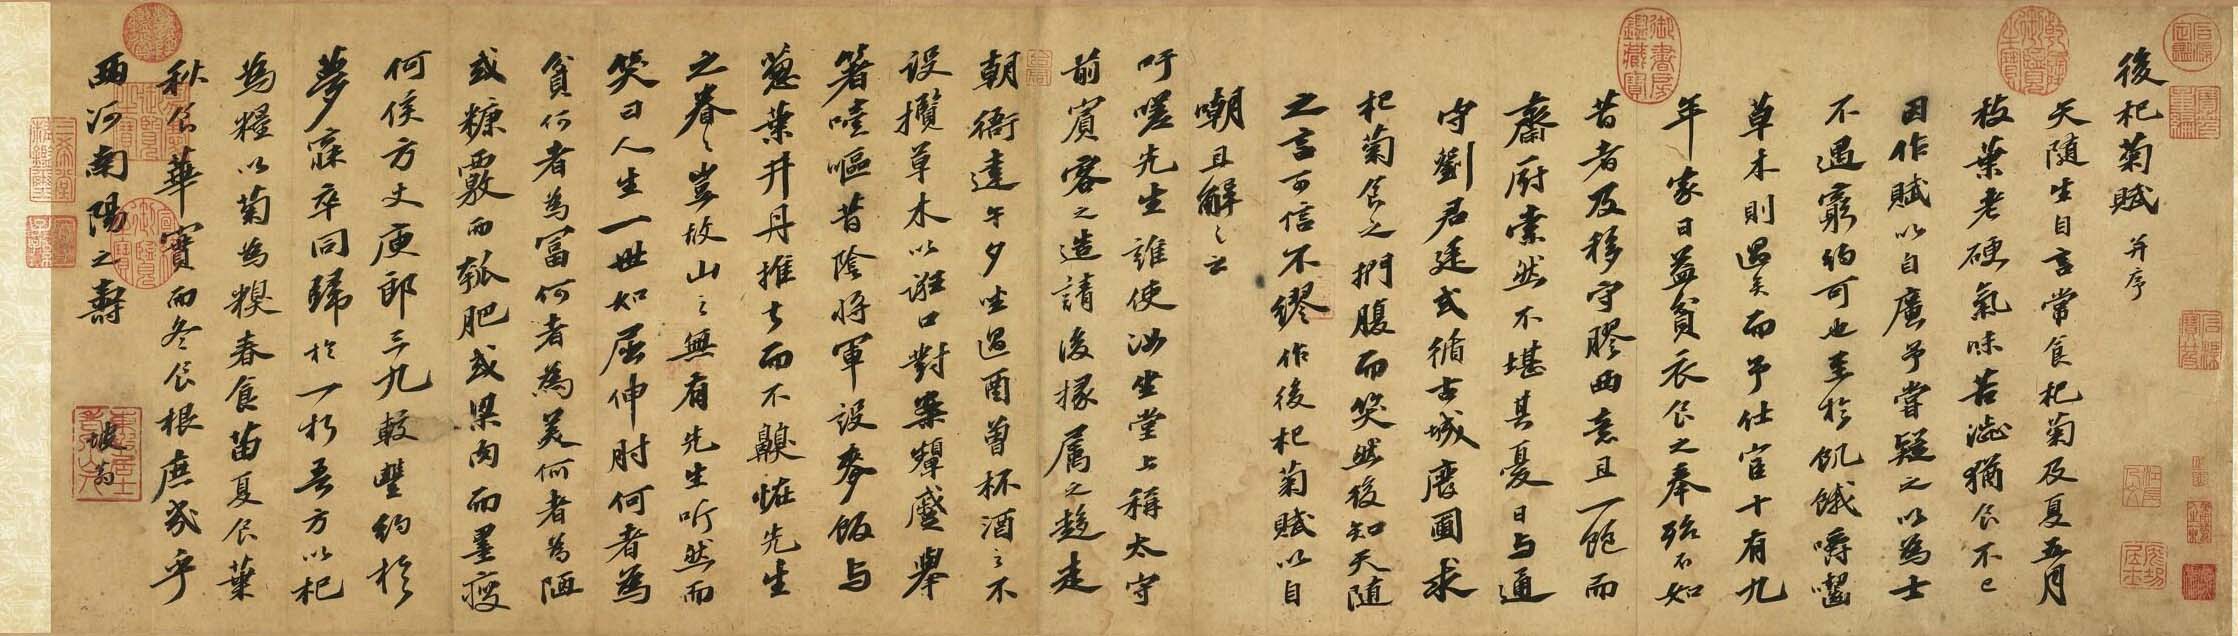 後杞菊賦 并序
天隨生自言常食杞菊及夏五月
枝葉老硬氣味苦澁猶食不已
因作賦以自廣予嘗疑之以為士
不遇窮約可也至於飢餓嚼齧
草木則過矣而予仕宦十有九
年家日益貧衣食之奉殆不如
昔者及移守膠西意且一飽而
齋厨索然不堪其憂日与通
守劉君廷式循古城廢圃求
杞菊食之捫腹而笑然後知天隨
之言可信不繆作後杞菊賦以自
嘲且解之云
吁嗟先生誰使汝坐堂上稱太守
前賓客之造請後掾属之趍走
朝衙達午夕坐過酉曾杯酒之不
設攬草木以誑口對案顰蹙舉
箸噎嘔昔陰將軍設麥飯与
葱葉井丹推去而不齅恠先生
之眷々豈故山之無有先生听然而
笑曰人生一世如屈伸肘何者為
貧何者為富何者為美何者為陋
或糠覈而瓠肥或梁肉而墨瘦
何侯方丈庾郎三九較豐約於
夢寐卒同歸於一朽吾方以杞
為糧以菊為糗春食苗夏食葉
秋食華實而冬食根庶幾乎
西河南陽之壽
坡翁
御書房鑑藏寶